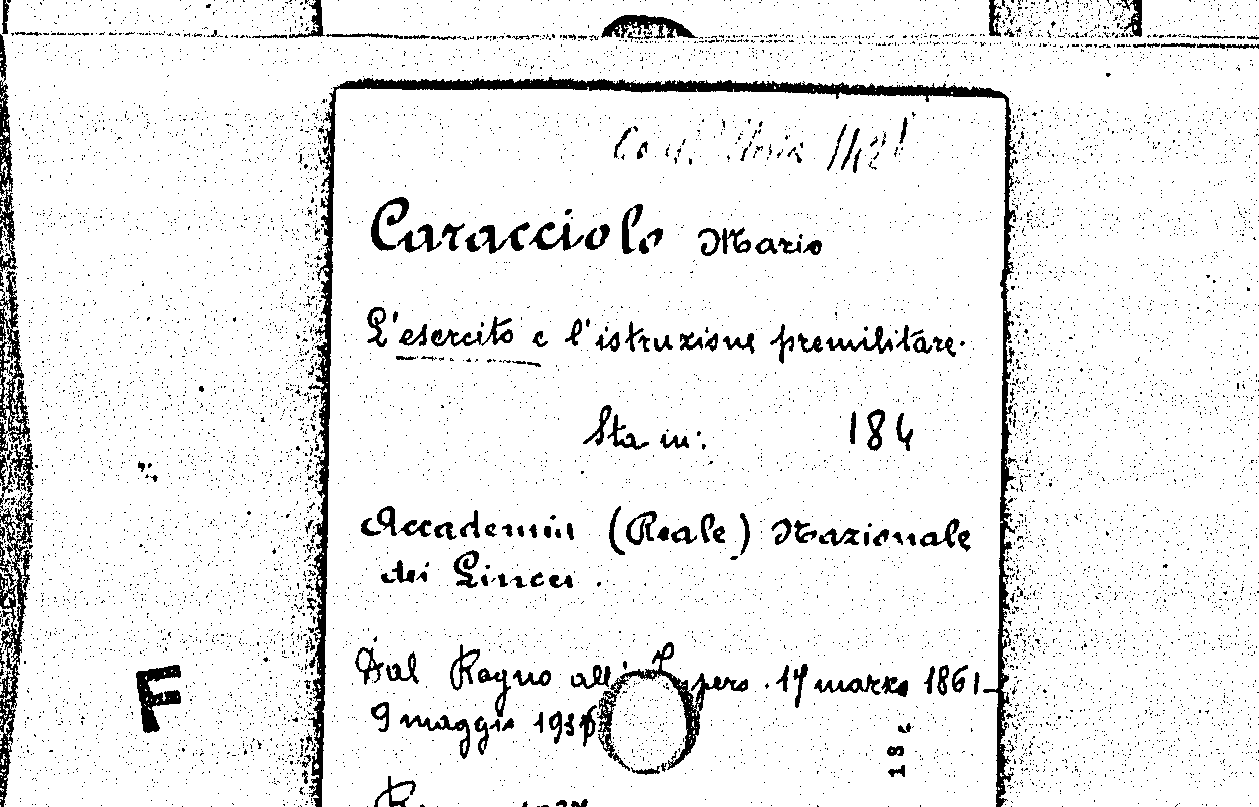 Caracciolo Mario
L'esercito e l'istruzione premilitare.
Sta in: 184
Accademia (Reale) Nazionale
dei Lincei.
Dal Regno all' Impero. 17 marzo 1861–
9 maggio 1936
F